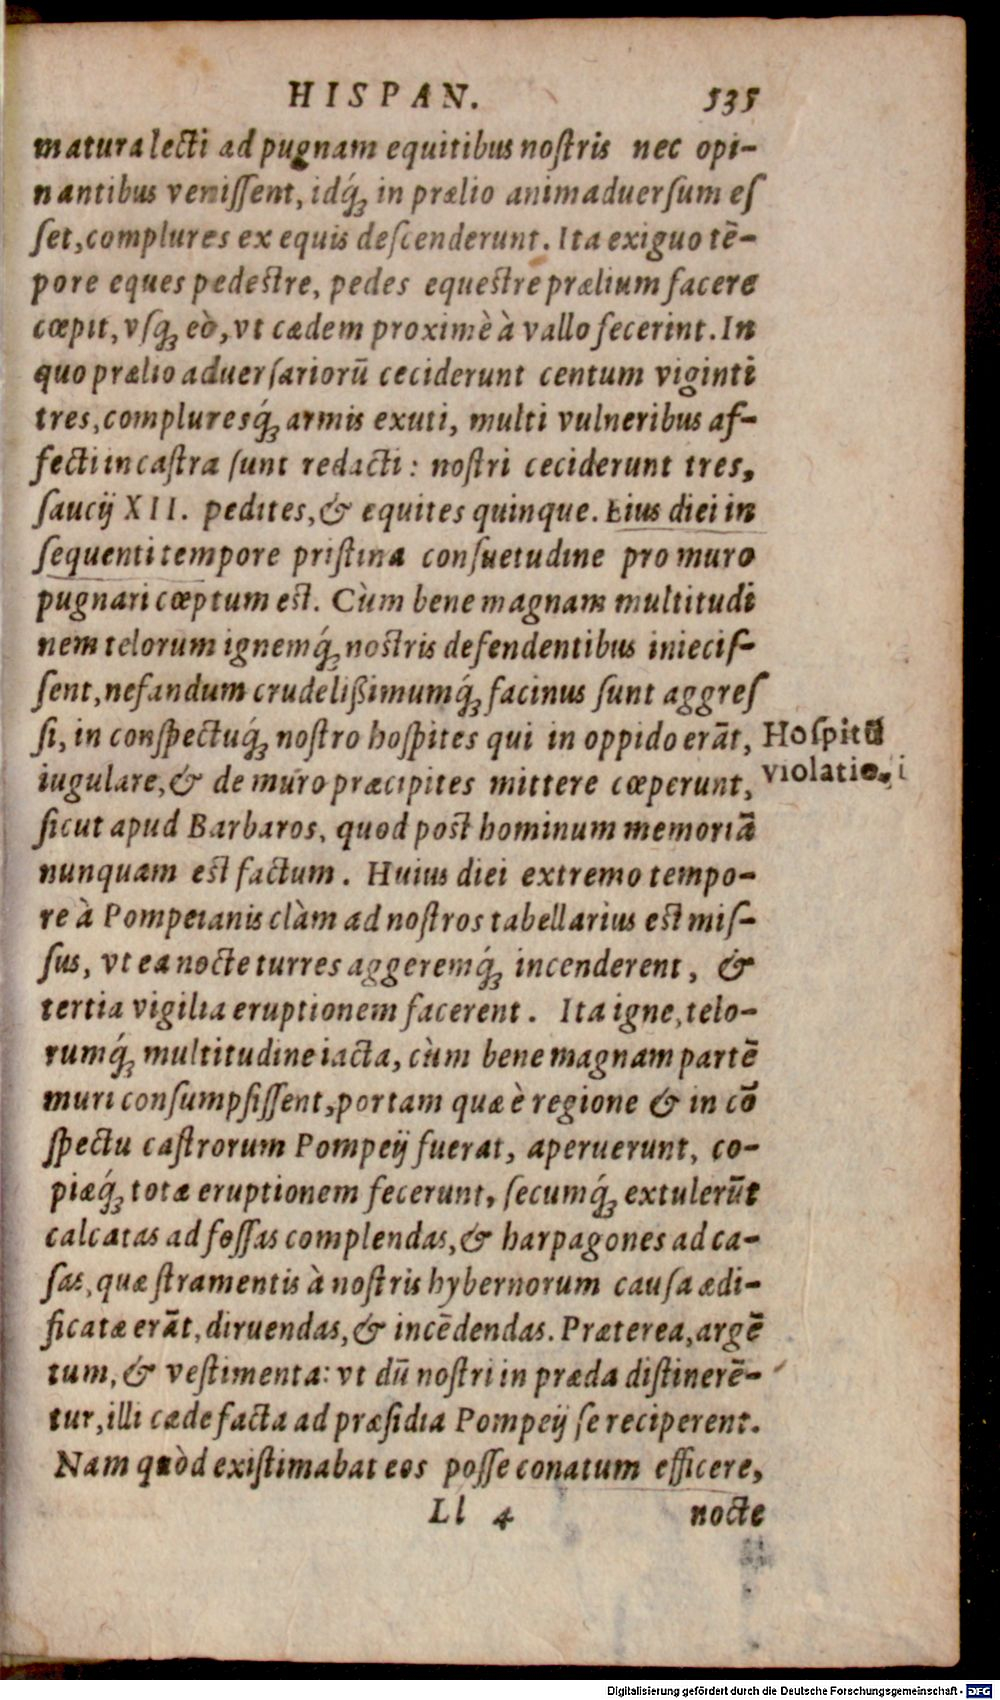 HISPAN. 535
matura lecti ad pugnam equitibus noſtris nec opi-
nantibus veniſſent, idq́; in prælio animaduerſum eſ
ſet, complures ex equis deſcenderunt. Ita exiguo tē-
pore eques pedeſtre, pedes equeſtre prælium facere
cœpit, vſq; eò, vt cædem proximè à vallo fecerint. In
quo prælio aduerſariorū ceciderunt centum viginti
tres, compluresq́; armis exuti, multi vulneribus af-
fecti in caſtra ſunt redacti: noſtri ceciderunt tres,
ſaucij XII. pedites, & equites quinque. Eius diei in
ſequenti tempore priſtina conſuetudine pro muro
pugnari cœptum eſt. Cùm bene magnam multitudi
nem telorum ignemq́; noſtris defendentibus inieciſ-
ſent, nefandum crudelißimumq́; facinus ſunt aggreſ
ſi, in conſpectuq́; noſtro hoſpites qui in oppido erāt,
Hoſpitū
iugulare, & de muro præcipites mittere cœperunt,
violatio.
ſicut apud Barbaros, quod poſt hominum memoriā
nunquam eſt factum. Huius diei extremo tempo-
re à Pompeianis clàm ad noſtros tabellarius eſt miſ-
ſus, vt ea nocte turres aggeremq́; incenderent, &
tertia vigilia eruptionem facerent. Ita igne, telo-
rumq́; multitudine iacta, cùm bene magnam partē
muri conſumpſiſſent, portam quæ è regione & in cō
ſpectu caſtrorum Pompeij fuerat, aperuerunt, co-
piæq́; totæ eruptionem fecerunt, ſecumq́; extulerūt
calcatas ad foſſas complendas, & harpagones ad ca-
ſas, quæ ſtramentis à noſtris hybernorum cauſa ædi-
ficatæ erāt, diruendas, & incēdendas. Præterea, argē
tum, & veſtimenta: vt dū noſtri in præda diſtinerē-
tur, illi cæde facta ad præſidia Pompeij ſe reciperent.
Nam quòd exiſtimabat eos poſſe conatum efficere,
Ll 4 nocte
Digitalisierung gefördert durch die Deutsche Forschungsgemeinschaft - DFG